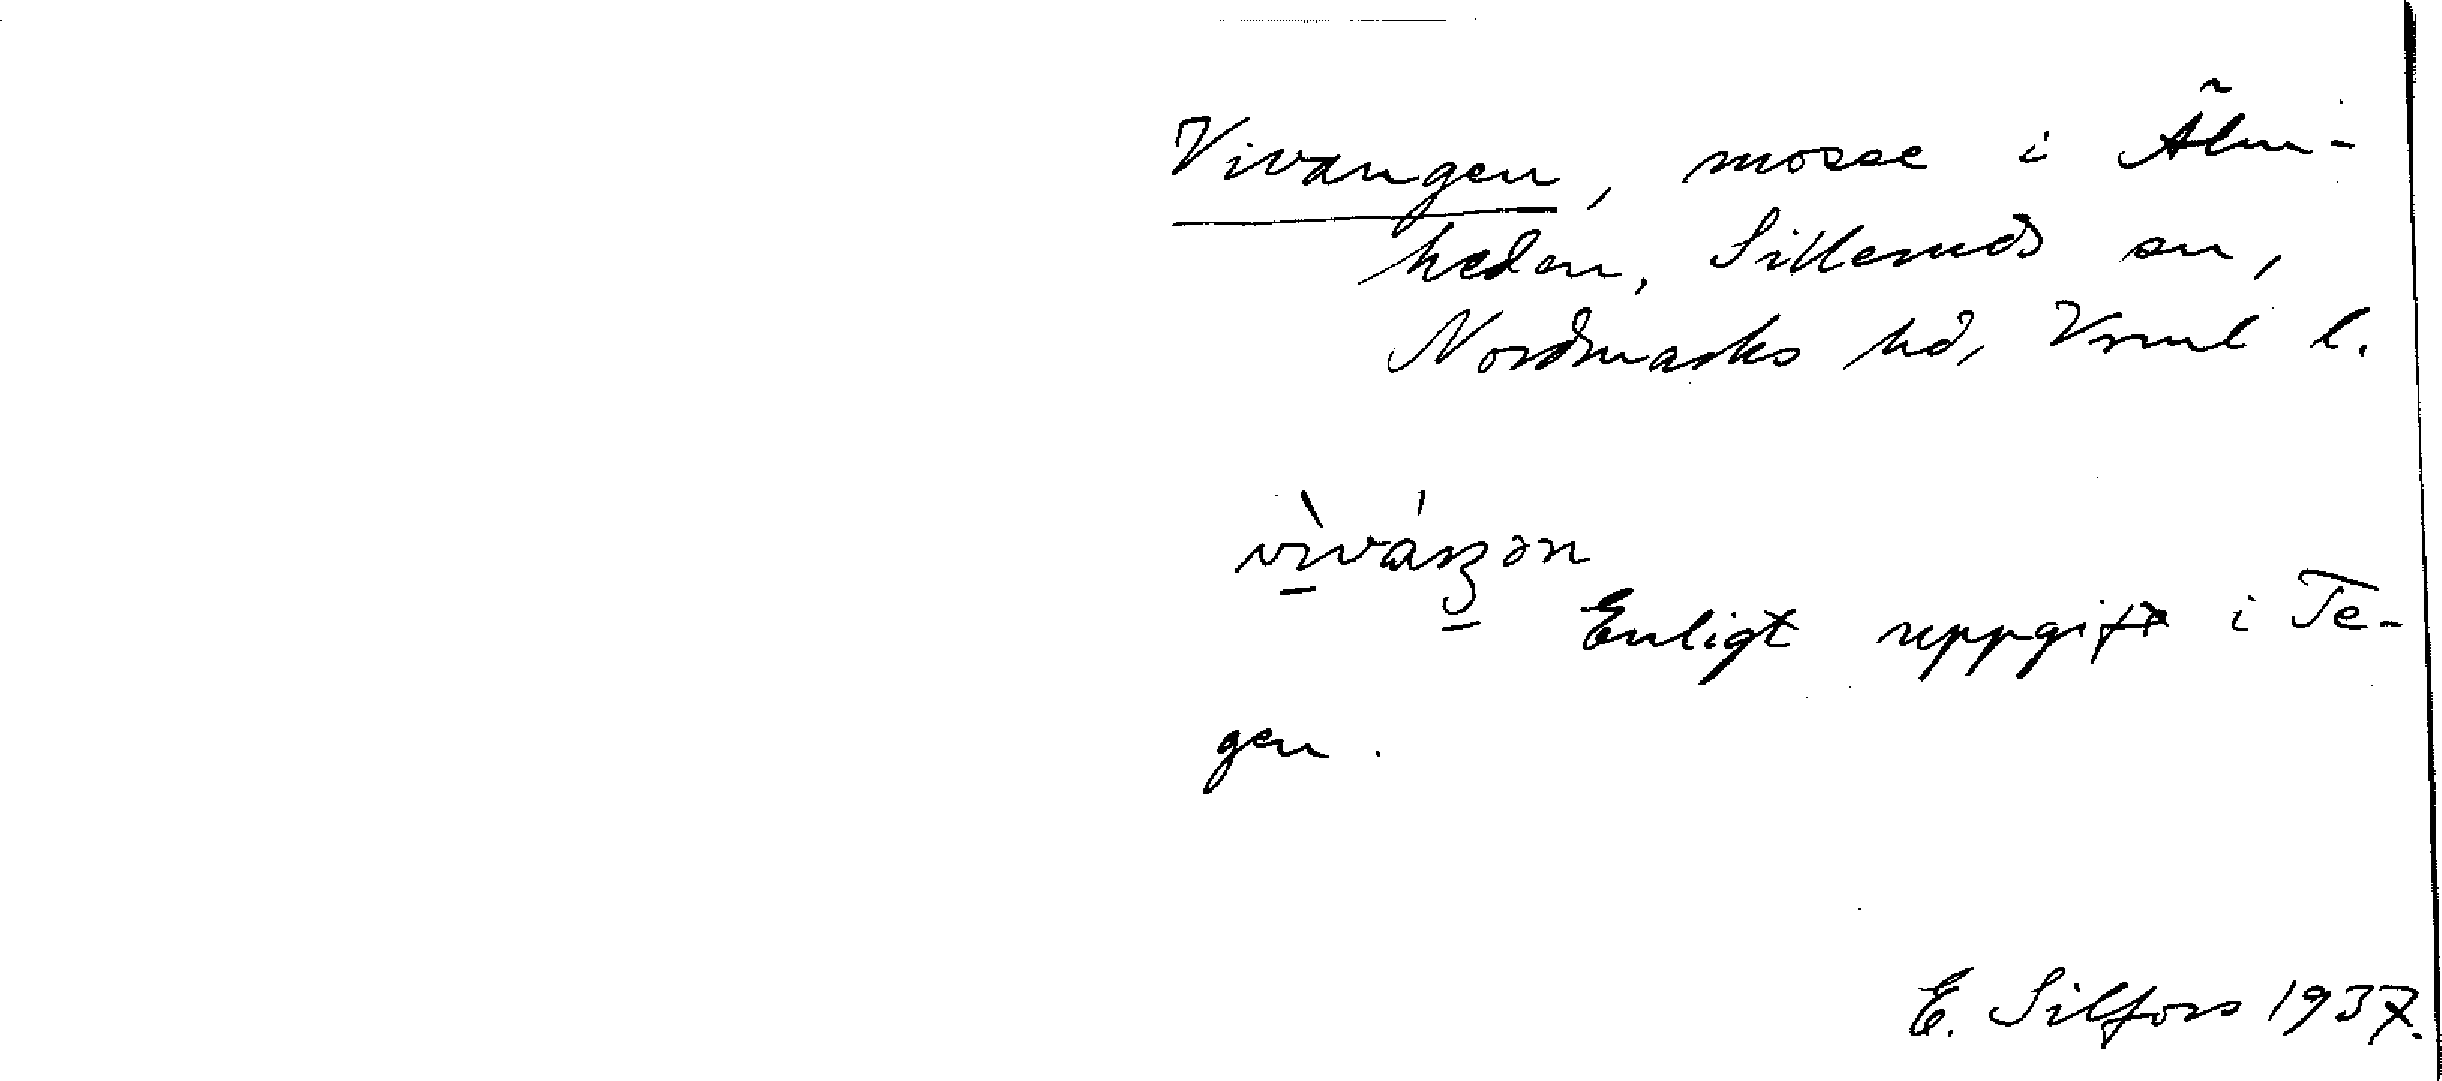 Vivangen, mosse i Älm-
heden, Silleruds sn,
Nordmarks hd, Vrml l.
Enligt uppgift i Te-
gen.
E. Silfors 1937.